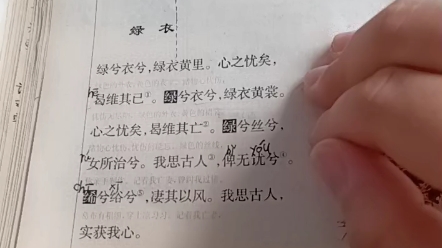 绿衣
绿兮衣兮,绿衣黄里。心之忧矣,
曷维其已①。绿兮衣兮,绿衣黄裳。
心之忧矣,曷维其亡②。绿兮丝兮,
女所治兮。我思古人③,俾无訧兮④。
絺兮绤兮⑤,凄其以风。我思古人,
实获我心。